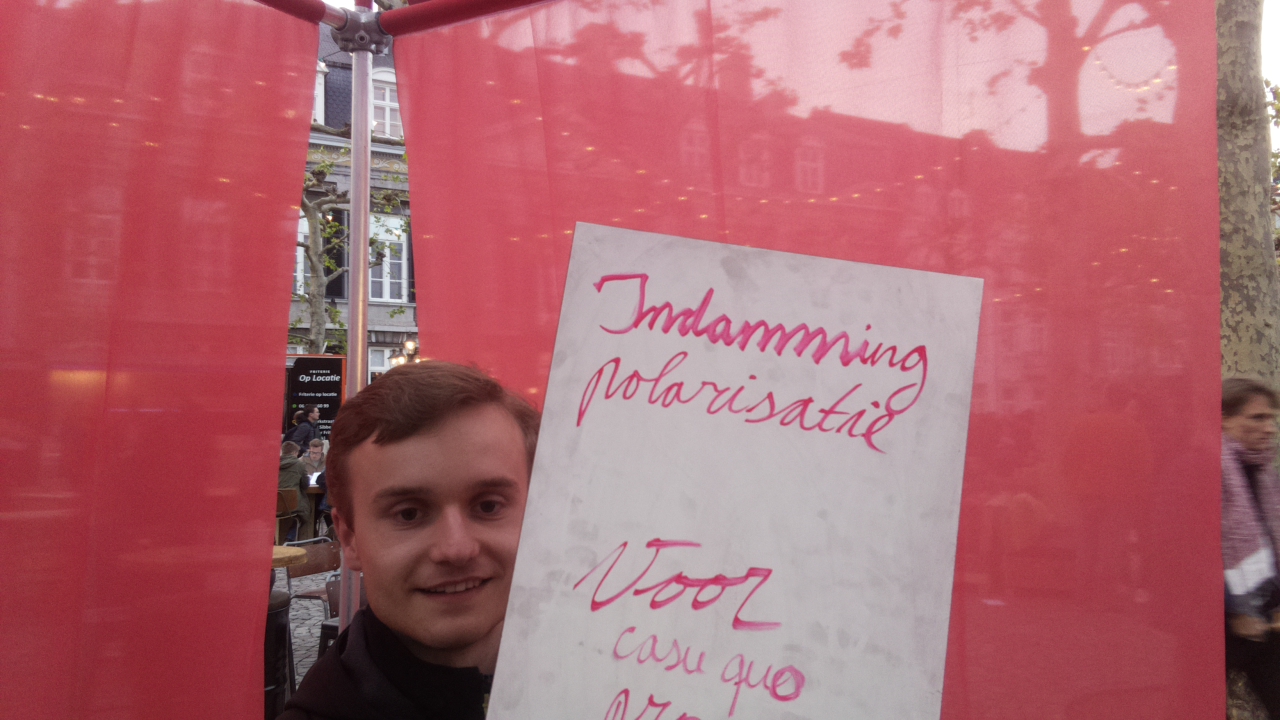 FRITERIE
Op Locatie
Friterie op locatie
Indamming
polarisatie
Voor
casu quo
pro